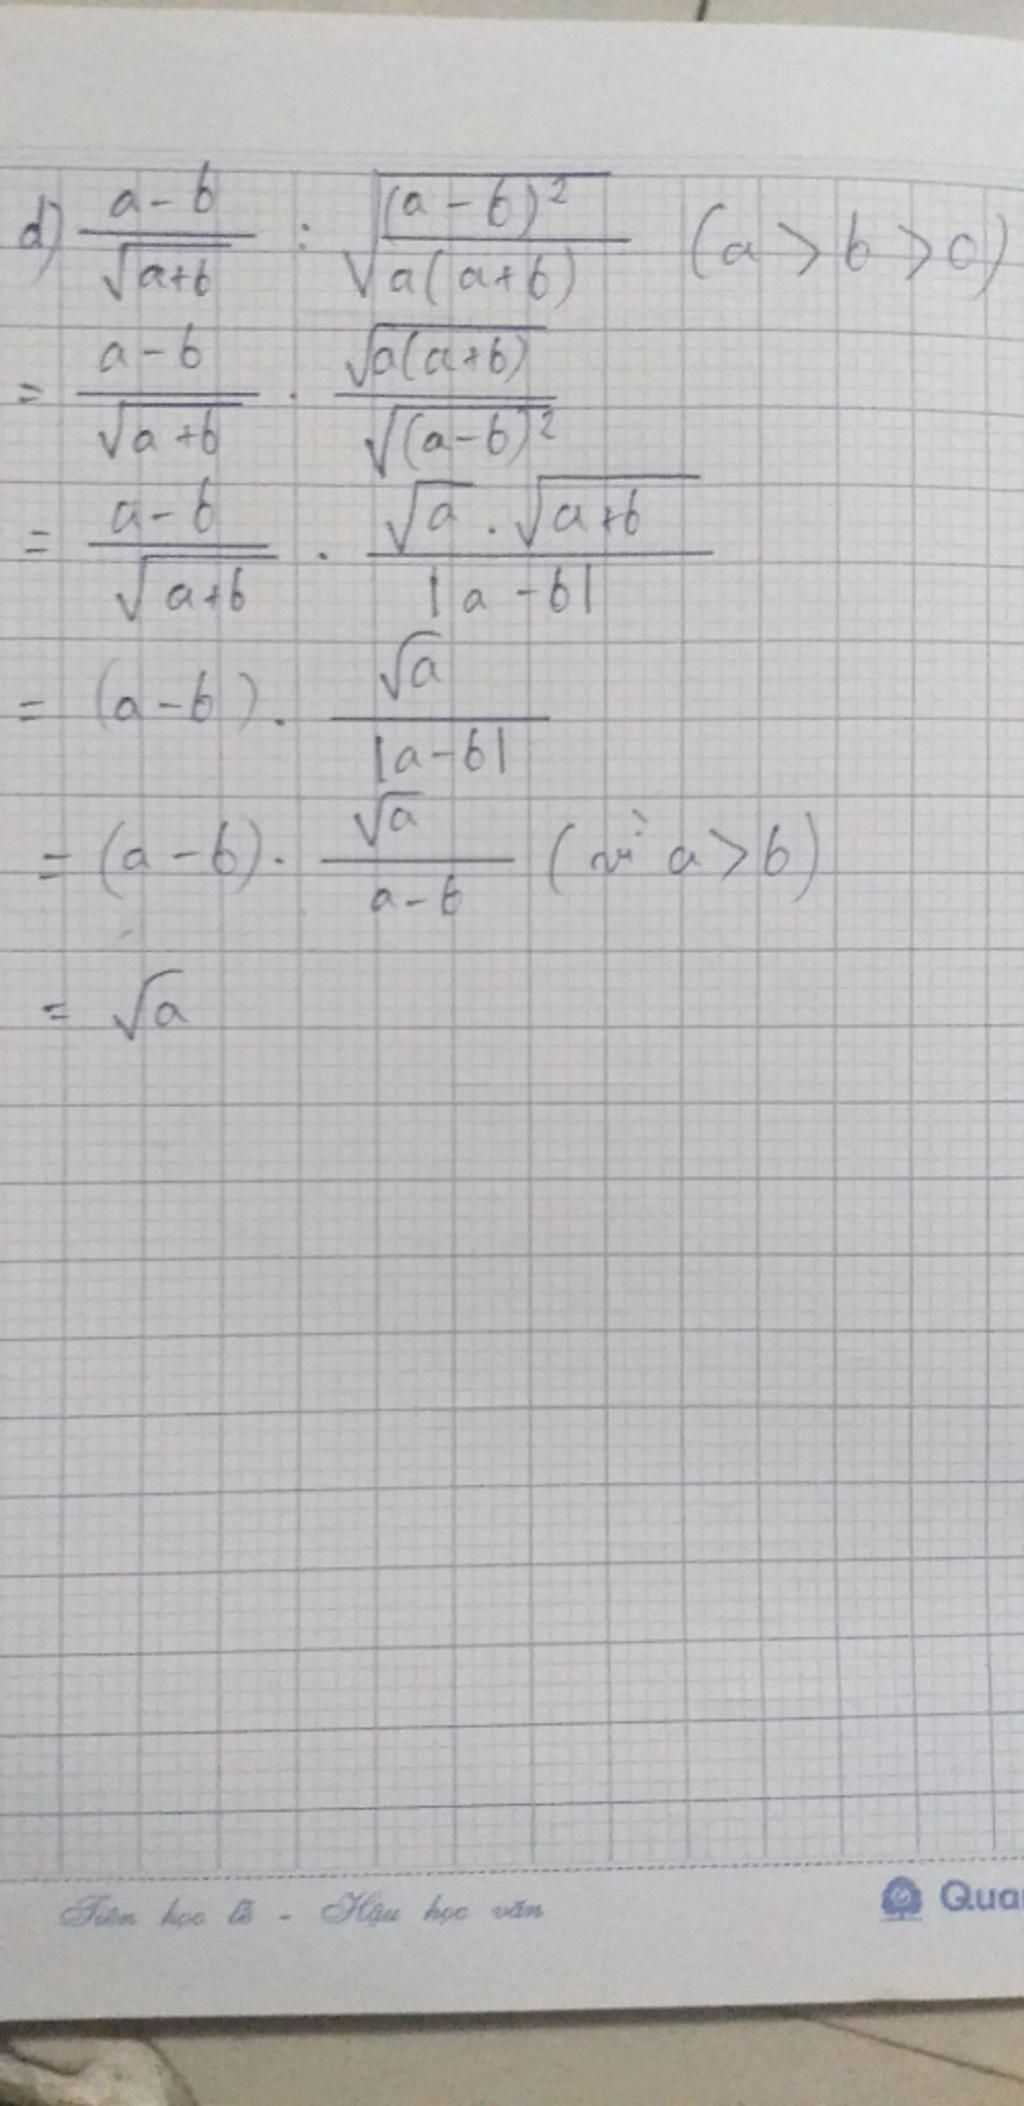 d) \frac{a-b}{\sqrt{a+b}} : \sqrt{\frac{(a-b)^2}{a(a+b)}} (a > b > 0)
= \frac{a-b}{\sqrt{a+b}} . \frac{\sqrt{a(a+b)}}{\sqrt{(a-b)^2}}
= \frac{a-b}{\sqrt{a+b}} . \frac{\sqrt{a} . \sqrt{a+b}}{|a-b|}
= (a-b) . \frac{\sqrt{a}}{|a-b|}
= (a-b) . \frac{\sqrt{a}}{a-b} (vì a > b)
= \sqrt{a}
Tiên học lễ - Hậu học văn
Qua